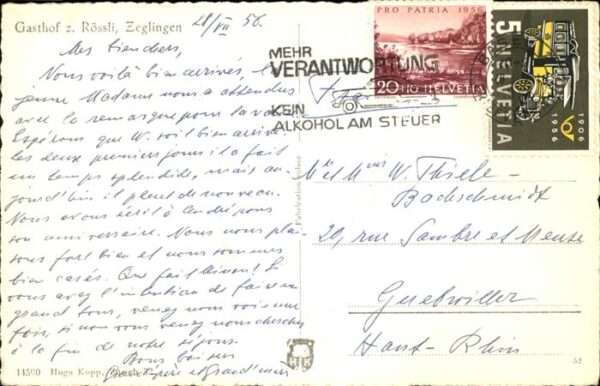 Gasthof z. Rössli, Zeglingen
28/VII 56.
Mes bien chers,
Nous voilà bien arrivés, la
jeune Madame nous a attendus
avec la remarque pour la
Espérons que W. soit bien arrivé.
les deux premiers jours il a fait
un temps splendide, mais au-
jourd'hui il pleut de nouveau.
Nous avons écrit à André pour
son anniversaire. Nous nous plai-
sons fort bien et nous sommes
bien casés. Que fait
vous avez l'intention de faire un
grand tour, venez nous voir une
fois, si non vous venez nous chercher
à la fin de notre séjour.
Bons baisers
grand'mère
14500 Hugo Kopp,
MEHR
VERANTWORTUNG
KEIN
ALKOHOL AM STEUER
PRO PATRIA 1956
20+10 HELVETIA
5 HELVETIA
1906
1956
et W. Thiele-
Bachschmidt
20, rue Sambre et Meuse
Guebwiller
Haut-Rhin
52